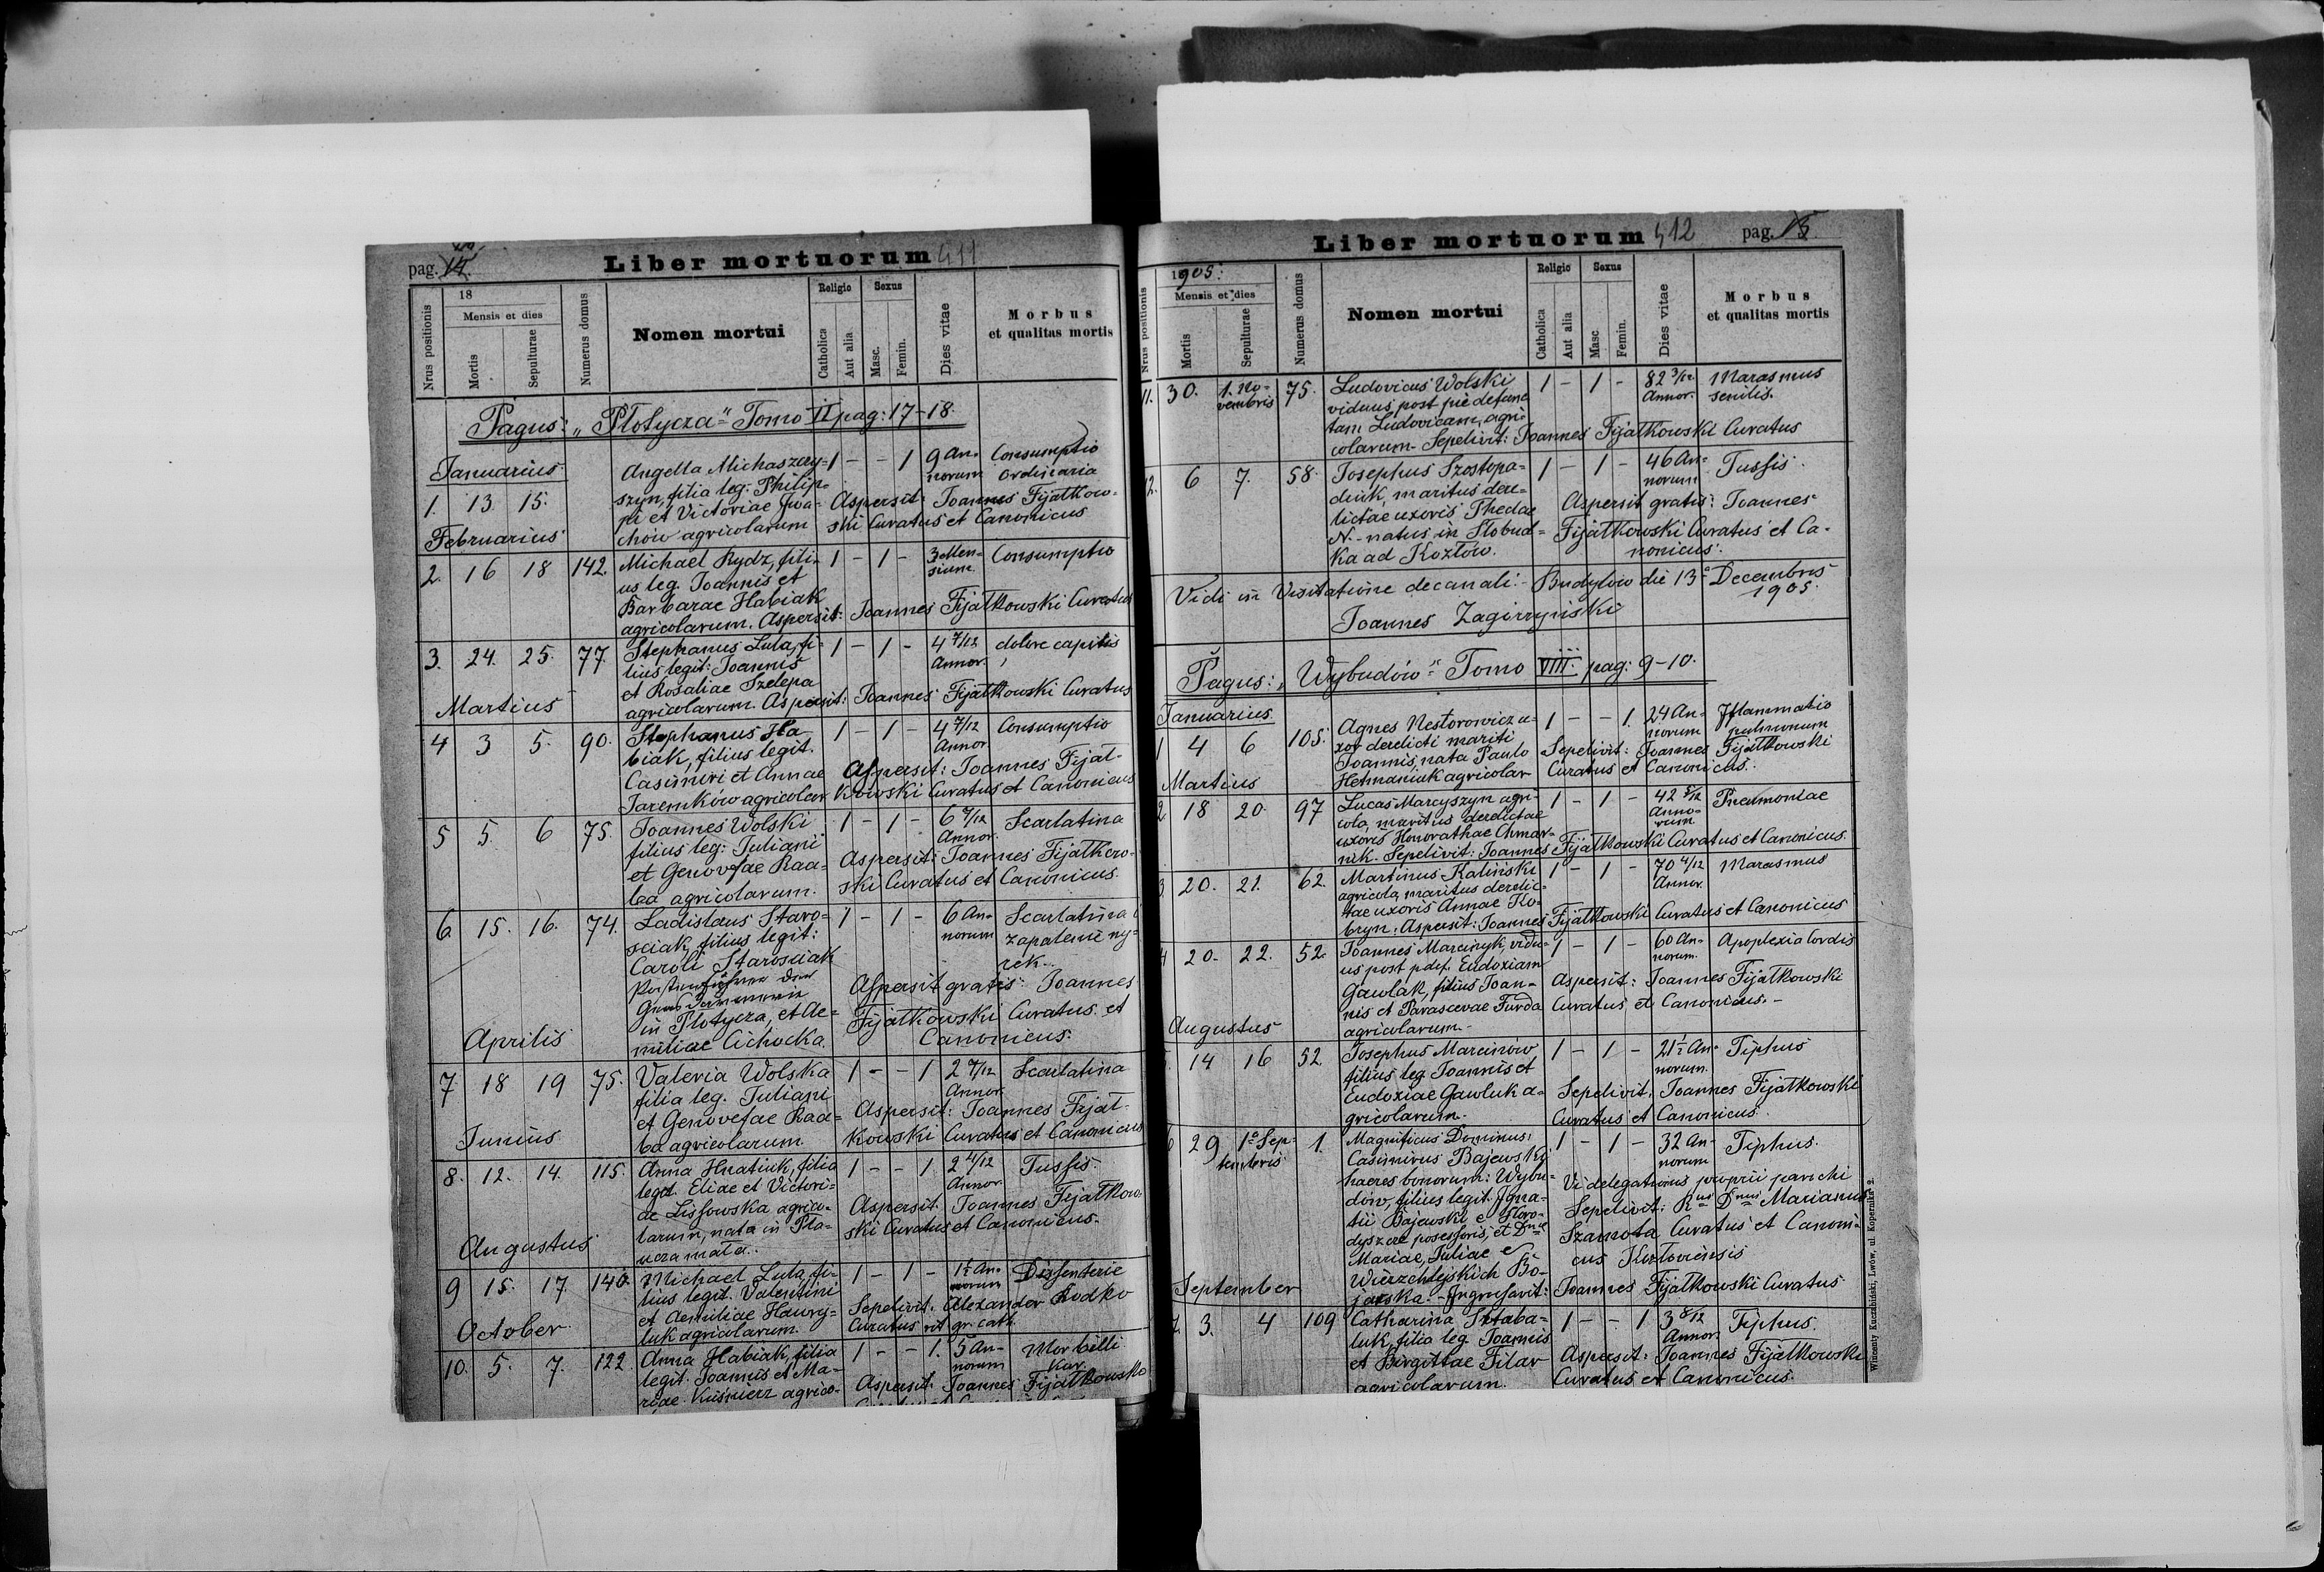 pag. 14.
Liber mortuorum 411
Nrus positionis
18
Mensis et dies
Mortis
Sepulturae
Numerus domus
Nomen mortui
Religio
Catholica
Aut alia
Sexus
Masc.
Femin.
Dies vitae
Morbus
et qualitas mortis
Pagus: „Płotycza" Tomo II pag: 17-18.
Januarius
1. 13 15.
Angella Michaszczy-
szyn, filia leg: Philip-
pi et Victoriae Iwa-
chow agricolarum
1 - - 1 9 An-
norum
Consumptio
ordinaria
Aspersit: Joannes Fijałkow-
ski Curatus et Canonicus
Februarius
2. 16 18 142.
Michael Rydz, fili-
us leg. Joannis et
Barbarae Habiak
agricolarum. Aspersit: Joannes Fijałkowski Curatus
1 - 1 - 3 Men-
sium
Consumptio
3. 24. 25. 77.
Stephanus Luta, fi-
lius legit: Joannis
et Rosaliae Szelepa
agricolarum. Aspersit: Joannes Fijałkowski Curatus
1 - 1 - 4 7/12
Annor.
dolore capitis
Martius
4 3 5. 90.
Stephanus Ha
biak, filius legit.
Casimiri et Annae
Jaremków agricolar
1 - 1 - 4 7/12
Annor
Consumptio
Aspersit: Joannes Fijał-
kowski Curatus et Canonicus
5 5. 6 75.
Joannes Wolski
filius leg: Juliani
et Genovefae Baa-
bca agricolarum.
1 - 1 - 6 7/12
Annor.
Scarlatina
Aspersit: Joannes Fijałkow-
ski Curatus et Canonicus.
6. 15. 16. 74.
Ladislaus Staro-
sciak, filius legit:
Caroli Starosciak
in Płotycza, et Ae-
miliae Cichocka.
1 - 1 - 6 An-
norum
Scarlatina i
zapalenie ny-
rek.
Aspersit gratis: Joannes
Fijałkowski Curatus et
Canonicus.
Aprilis
7. 18 19 75.
Valeria Wolska
filia leg. Juliani
et Genovefae Raa-
ba agricolarum
1 - - 1 2 7/12
Annor.
Scarlatina
Aspersit: Joannes Fijał-
kowski Curatus et Canonicus
Junius
8. 12. 14. 115.
Anna Hnatiuk, filia
legit. Eliae et Victori-
ae Lissowska agrico-
larum, nata in Pła-
ucza mała.
1 - - 1 2 4/12
Annor.
Tussis.
Aspersit. Joannes Fijałkow-
ski Curatus et Canonicus.
Augustus
9 15. 17. 140.
Michael Luta, fi-
lius legit. Valentini
et Aemiliae Hawry-
luk agricolarum.
1 - 1 - 1½ An-
norum
Dissenterie
Sepelivit. Alexander Rodko
Curatus rit. gr. cath.
October
10. 5. 7. 122.
Anna Habiak, filia
legit. Joannis et Ma-
riae Kuśnierz agrico-
1 - - 1. 5 An-
norum
Morbilli
Kur.
Aspersit. Joannes Fijałkowski
Liber mortuorum 412
pag. 15.
Nrus positionis
1905.
Mensis et dies
Mortis
Sepulturae
Numerus domus
Nomen mortui
Religio
Catholica
Aut alia
Sexus
Masc
Femin.
Dies vitae
Morbus
et qualitas mortis
11. 30. 1. No-
vembris 75.
Ludovicus Wolski
viduus post piè defunc
tam Ludovicam, agri-
colarum- Sepelivit: Joannes Fijałkowski Curatus
1 - 1 - 82 3/12
Annor.
Marasmus
senilis.
12. 6 7. 58.
Josephus Szostopa-
diuk, maritus dere-
lictae uxoris Theclae
N.- natus in Słobud-
ka ad Kozłów.
1 - 1 - 46 An-
norum
Tussis.
Aspersit gratis: Joannes
Fijałkowski Curatus et Ca-
nonicus.
Vidi in Visitatione decanali.- Budyłów die 13ª Decembris
1905.
Joannes Zagirzyński
Pagus: „Wybudów" Tomo VIII. pag: 9-10.
Januarius
1 4 6 105.
Agnes Nestorowicz u-
xor derelicti mariti
Joannis, nata Paulo
Hetmaniuk agricolar
1 - - 1. 24 An-
norum
Iflammatio
pulmonum
Sepelivit: Joannes Fijałkowski
Curatus et Canonicus.
Martius
2 18 20. 97
Lucas Marcyszyn agri-
cola, maritus derelictae
uxoris Honorathae Chmar-
nik. Sepelivit: Joannes Fijałkowski Curatus et Canonicus.
1 - 1 - 42 5/12
Anno-
rum
Pneumoniae
3 20. 21. 62.
Martinus Kaliński
agricola, maritus derelic-
tae uxoris Annae Ko-
bryn. Aspersit: Joannes Fijałkowski Curatus et Canonicus
1 - 1 - 70 4/12
Annor.
Marasmus
4 20. 22. 52.
Joannes Marcinyk, vidu-
us post p.def. Eudoxiam
Gawlak, filius Joan-
nis et Parascevae Furda
agricolarum.-
1 - 1 - 60 An-
norum.
Apoplexia Cordis
Aspersit: Joannes Fijałkowski
Curatus et Canonicus.-
Augustus
14 16 52.
Josephus Marcinów
filius leg Joannis et
Eudoxiae Gawluk a-
gricolarum.-
1 - 1 - 21½ An-
norum.
Tiphus
Sepelivit. Joannes Fijałkowski
Curatus et Canonicus.
6 29 1ª Sep-
tembris 1.
Magnificus Dominus,
Casimirus Bajewski
haeres bonorum: Wybu-
dów, filius legit. Igna-
tii Bajewski e Horo-
dyszcze posessoris, et Dnae
Mariae, Juliae e
Wierzchlejskich Bo-
jarska.- Ingressavit: Joannes Fijałkowski Curatus
1 - 1 - 32 An-
norum
Tiphus.
Vi delegationis proprii parochi
Sepelivit: Rus Dnus Marianus
Szamota Curatus et Canoni-
cus Kozłoviensis
September
7. 3. 4 109
Catharina Sztaba-
luk, filia leg Joannis
et Birgittae Filar
agricolarum.
1 - - 1 3 8/12
Annor.
Tiphus.
Aspersit: Joannes Fijałkowski
Curatus et Canonicus.
Wincenty Kuczabiński, Lwów, ul. Kopernika 2.